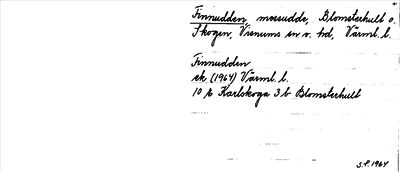 Finnudden, mossudde, Blomsterhult o.
Skogen, Visnums sn v. hd, Värml. l.
Finnudden
ek (1964) Värml. l.
10 E Karlskoga 3 b Blomsterhult
S.P. 1964